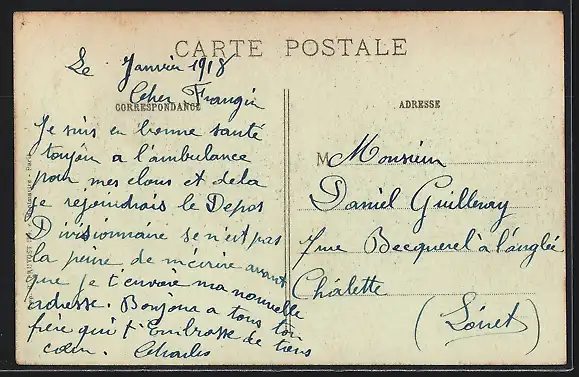 CARTE POSTALE
Le Janvier 1918
Cher Frangin
CORRESPONDANCE
Je suis en bonne santé
toujou a l'ambulance
pour mes clous et dela
je rejoindrais le Depos
Divisionnaire se n'est pas
la peine de m'écrire avant
que je t'envoie ma nouvelle
adresse. Bonjour a tous ton
frère qui t'Embrasse de tiens
cœur. Charles
ADRESSE
M Monsieur
Daniel Guilleray
rue Becquerel à l'anglée
Châlette
(Loiret)